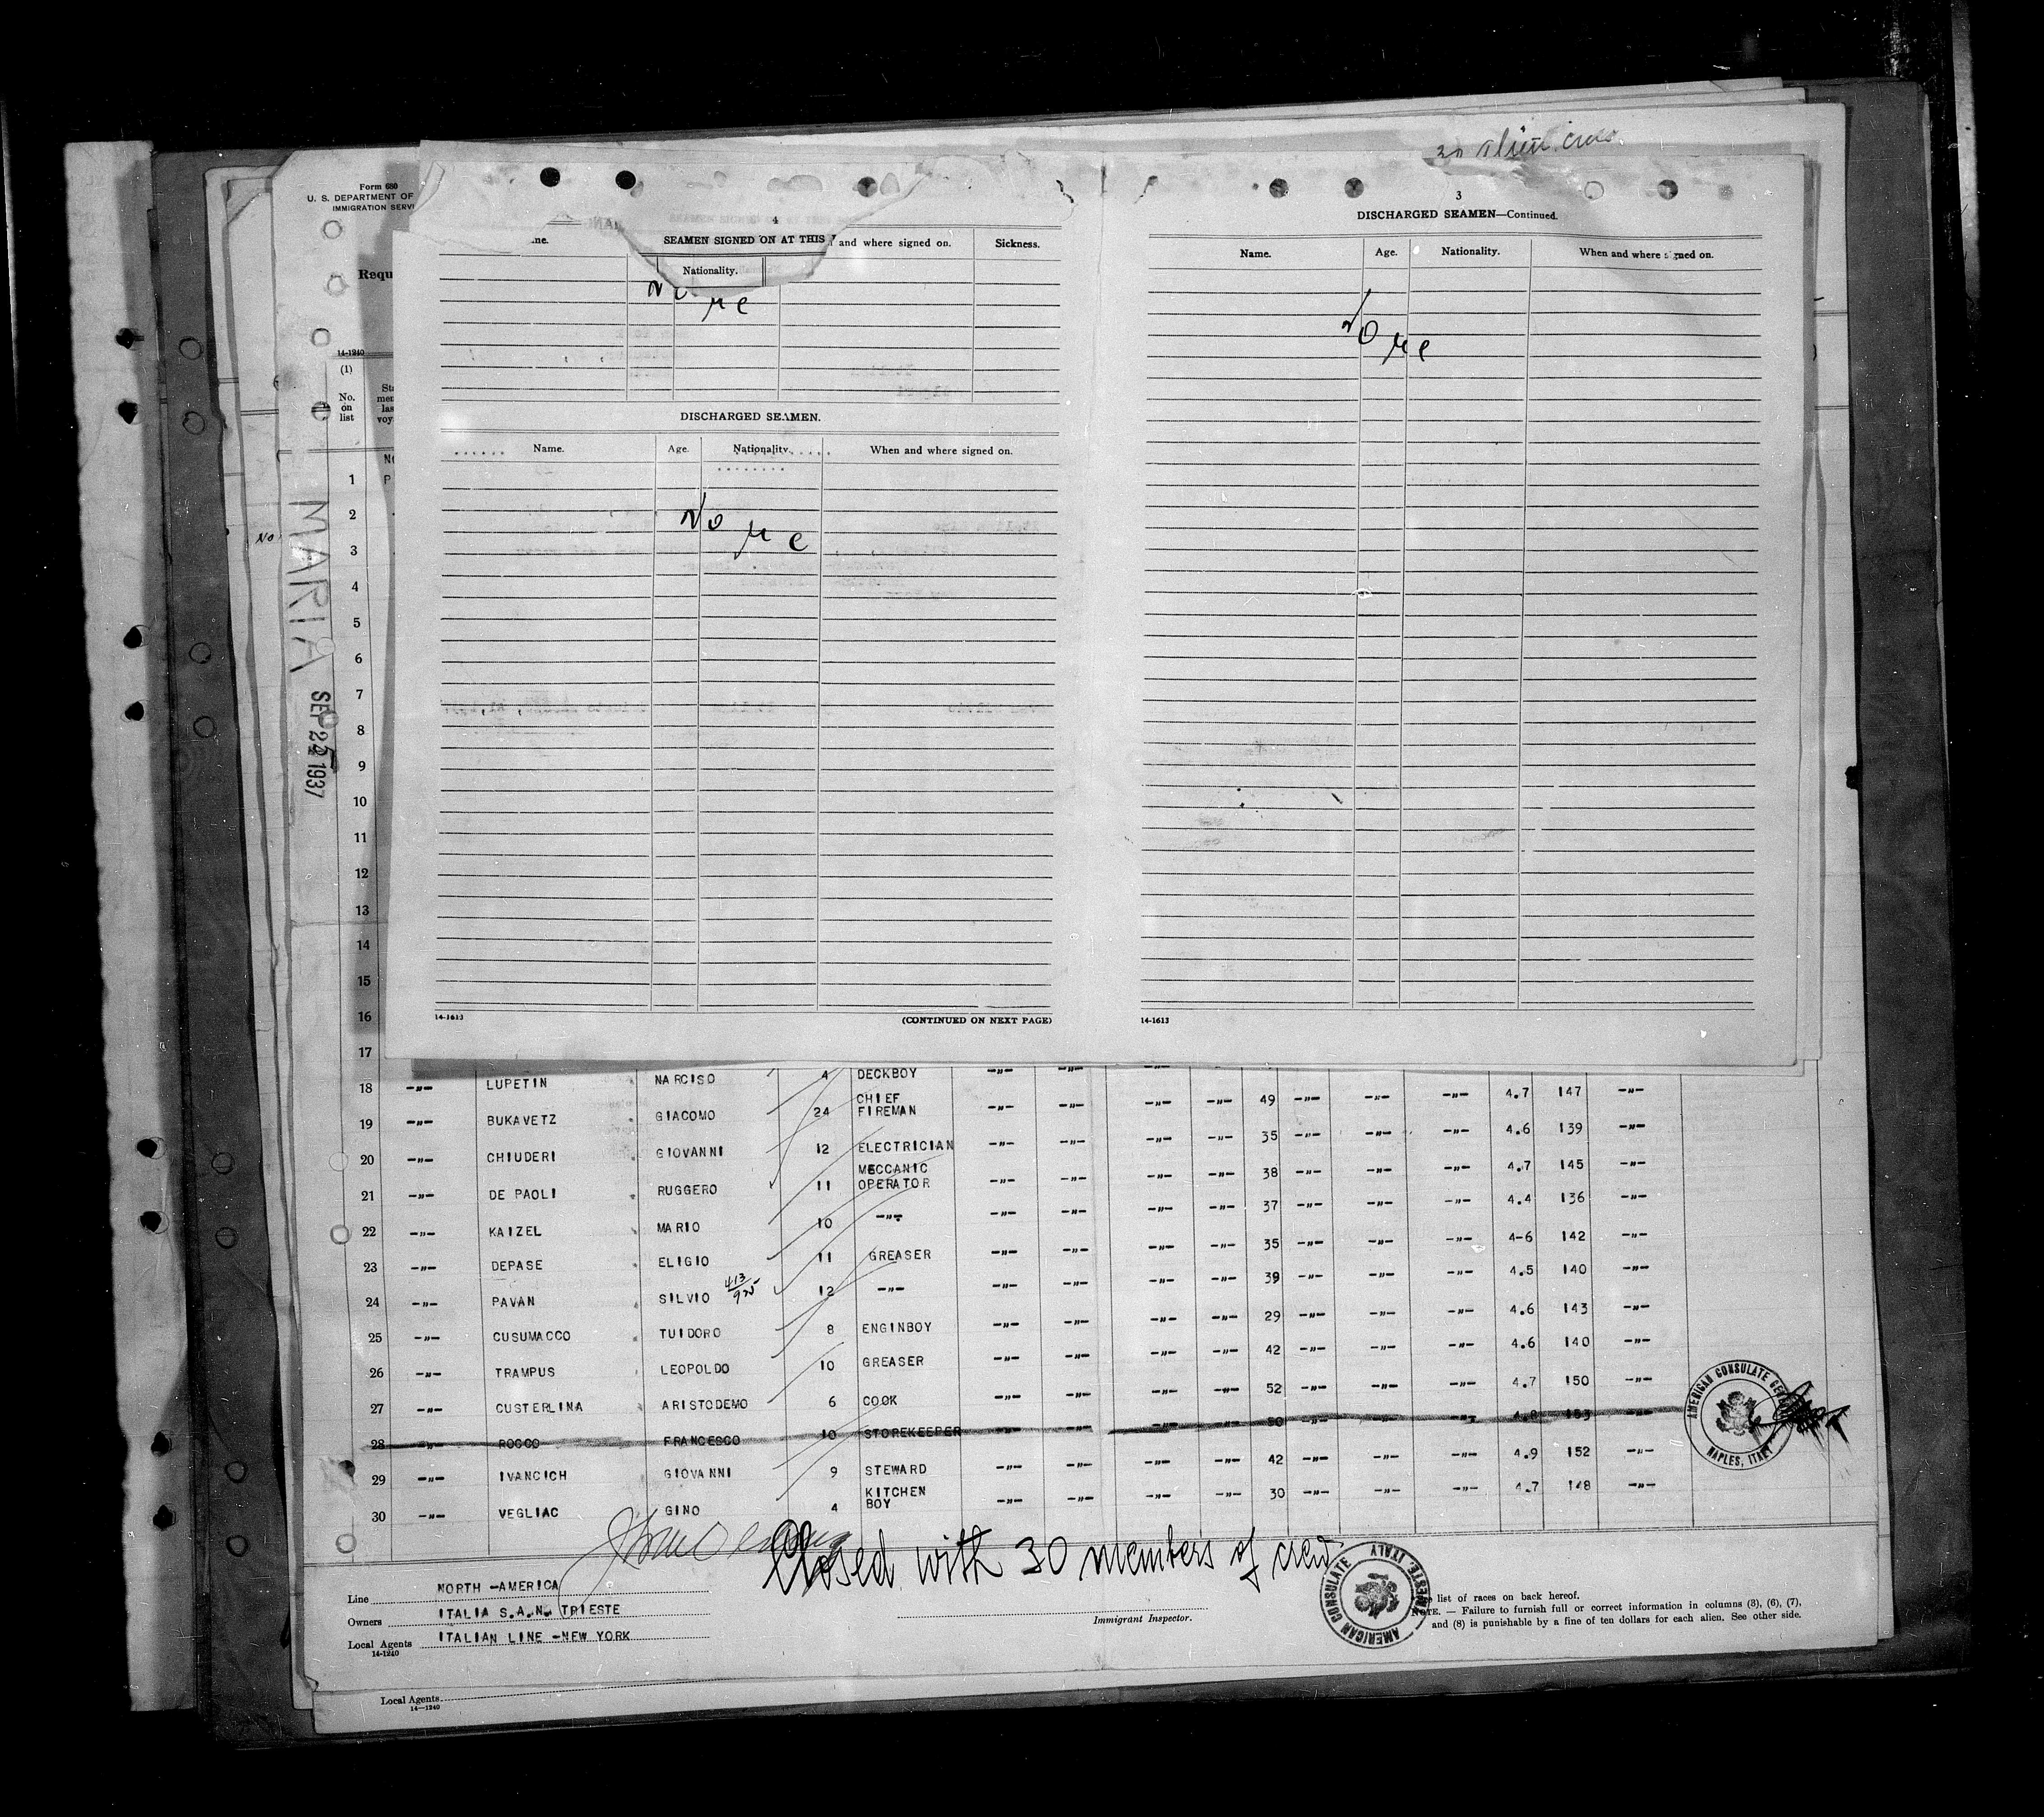 30 alien crew.
Form 680
U. S. DEPARTMENT OF
IMMIGRATION SERVI
Requ
14-1240
(1)
No. on list
MARIA
SEP 1937
No
4
SEAMEN SIGNED ON AT THIS
Nationality.
and where signed on.
Sickness.
None
DISCHARGED SEAMEN.
Name. Age. Nationality. When and where signed on.
None
14-1613 (CONTINUED ON NEXT PAGE)
3
DISCHARGED SEAMEN—Continued.
Name. Age. Nationality. When and where signed on.
None
14-1613
1
2
3
4
5
6
7
8
9
10
11
12
13
14
15
16
17
18 -"- LUPETIN NARCISO 4 DECKBOY -"- -"- -"- -"- 49 -"- -"- -"- 4.7 147 -"-
19 -"- BUKAVETZ GIACOMO 24 CHIEF FIREMAN -"- -"- -"- -"- 35 -"- -"- -"- 4.6 139 -"-
20 -"- CHIUDERI GIOVANNI 12 ELECTRICIAN -"- -"- -"- -"- 38 -"- -"- -"- 4.7 145 -"-
21 -"- DE PAOLI RUGGERO 11 MECCANIC OPERATOR -"- -"- -"- -"- 37 -"- -"- -"- 4.4 136 -"-
22 -"- KAIZEL MARIO 10 -"- -"- -"- -"- -"- 35 -"- -"- -"- 4-6 142 -"-
23 -"- DEPASE ELIGIO 11 GREASER -"- -"- -"- -"- 39 -"- -"- -"- 4.5 140 -"-
24 -"- PAVAN SILVIO 12 -"- -"- -"- -"- -"- 29 -"- -"- -"- 4.6 143 -"-
25 -"- CUSUMACCO TUIDORO 8 ENGINBOY -"- -"- -"- -"- 42 -"- -"- -"- 4.6 140 -"-
26 -"- TRAMPUS LEOPOLDO 10 GREASER -"- -"- -"- -"- 52 -"- -"- -"- 4.7 150 -"-
27 -"- CUSTERLINA ARISTODEMO 6 COOK -"- -"- -"- -"- 50 -"- -"- -"- 4.8 153 -"-
28 -"- ROCCO FRANCESCO 10 STOREKEEPER -"- -"- -"- -"- 42 -"- -"- -"- 4.9 152 -"-
29 -"- IVANCICH GIOVANNI 9 STEWARD -"- -"- -"- -"- 30 -"- -"- -"- 4.7 148 -"-
30 -"- VEGLIAC GINO 4 KITCHEN BOY -"- -"-
AMERICAN CONSULATE GENERAL
NAPLES, ITALY
Closed with 30 members of crew
AMERICAN CONSULATE
TRIESTE, ITALY
Line NORTH -AMERICA
Owners ITALIA S.A.N. TRIESTE
Local Agents ITALIAN LINE -NEW YORK
14-1240
Immigrant Inspector.
list of races on back hereof.
NOTE. — Failure to furnish full or correct information in columns (3), (6), (7),
and (8) is punishable by a fine of ten dollars for each alien. See other side.
Local Agents
14—1240